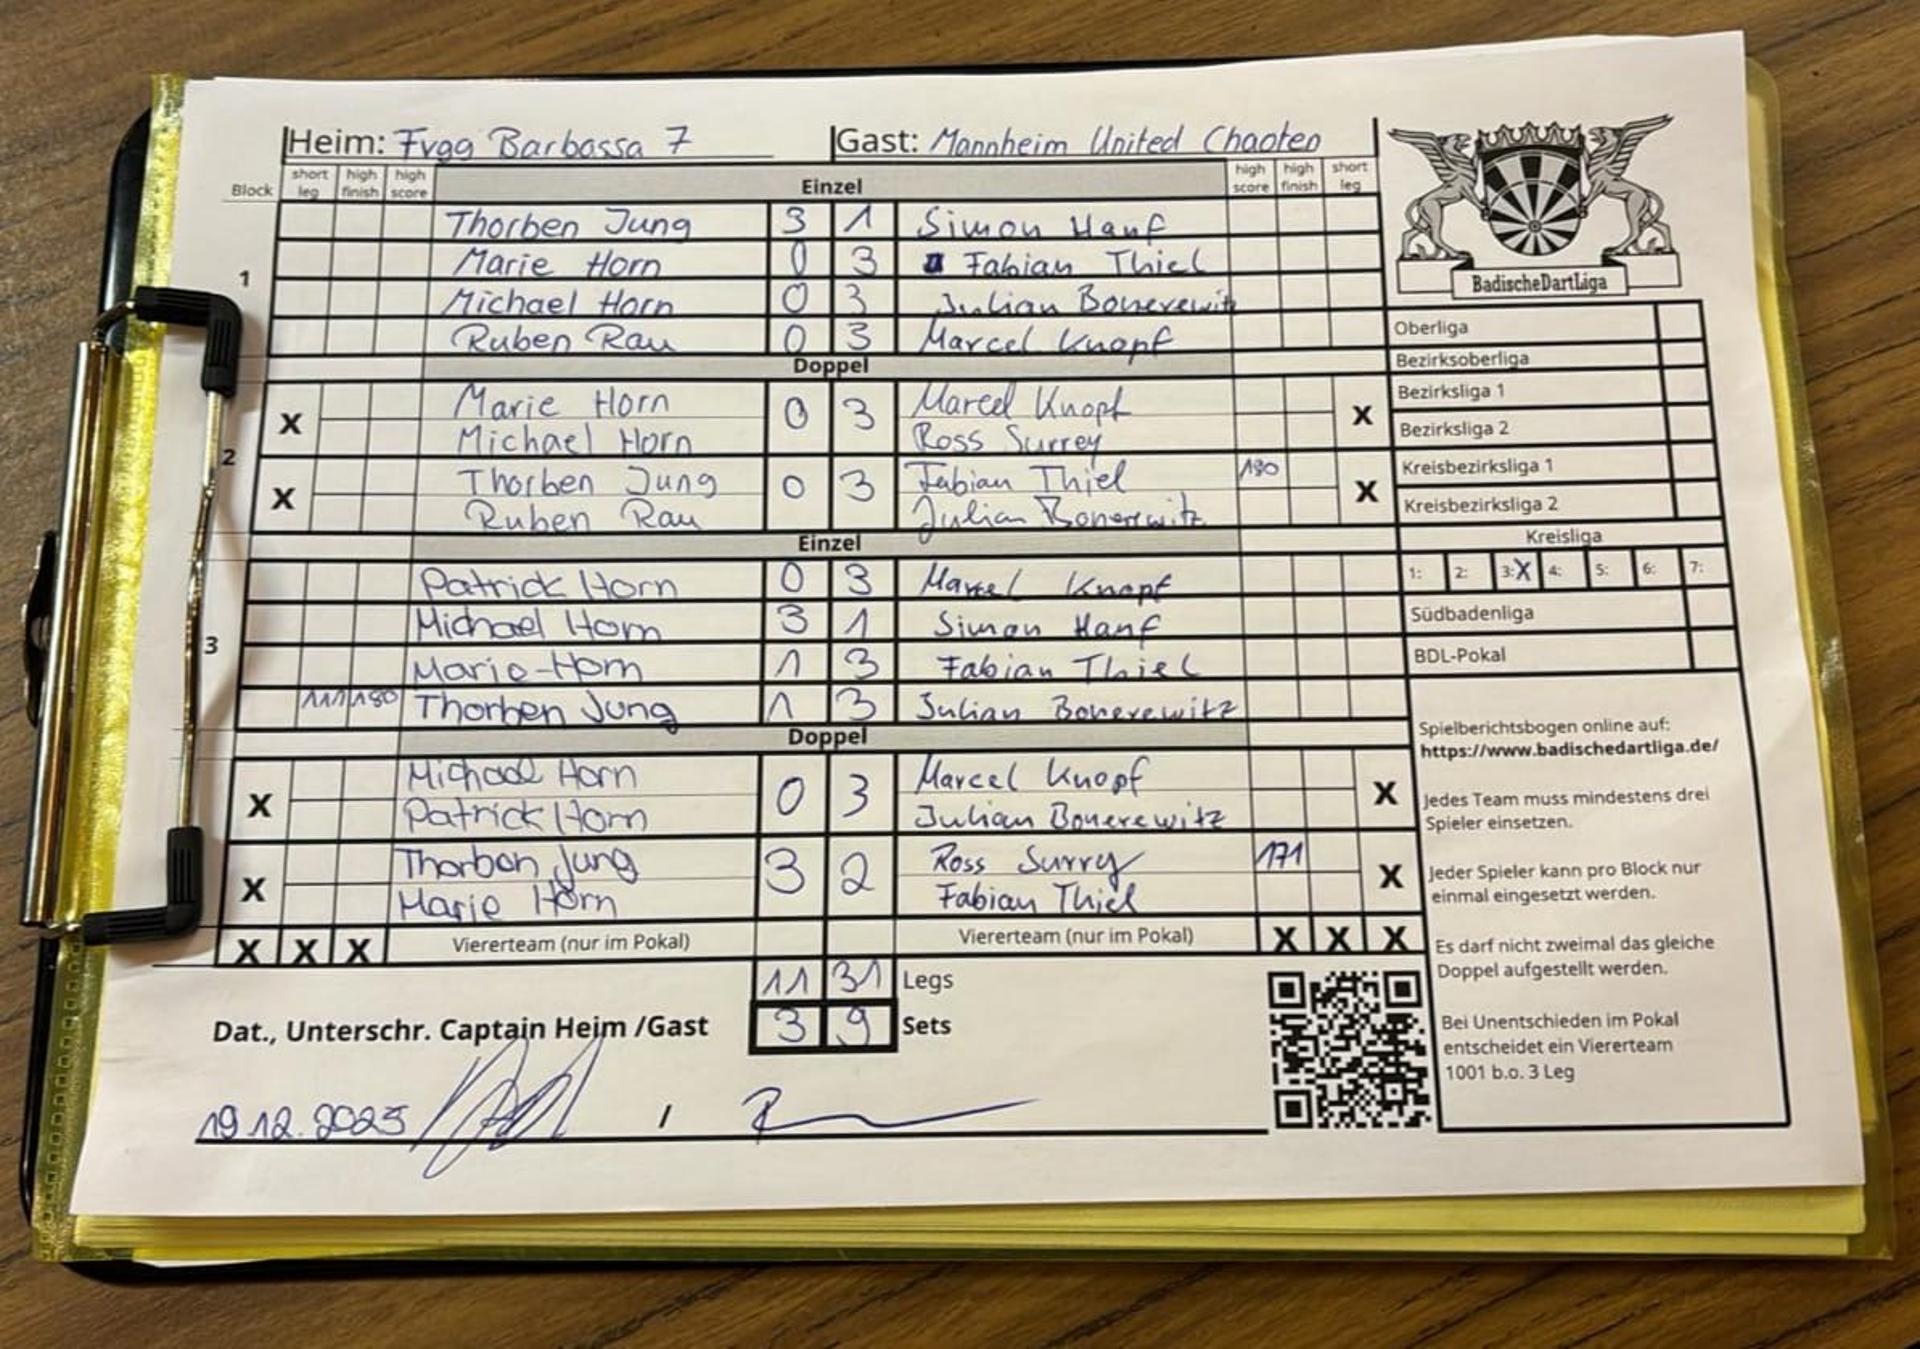 Heim: Fvgg Barbossa 7 Gast: Mannheim United Chaoten
Block short leg high finish high score Einzel high score high finish short leg
Thorben Jung 3 1 Simon Hanf
1 Marie Horn 0 3 Fabian Thiel
Michael Horn 0 3 Julian Bonerewitz
Ruben Rau 0 3 Marcel Knopf
Doppel
X Marie Horn 0 3 Marcel Knopf X
Michael Horn Ross Surrey
2
X Thorben Jung 0 3 Fabian Thiel 180 X
Ruben Rau Julian Bonerewitz
Einzel
Patrick Horn 0 3 Marcel Knopf
Michael Horn 3 1 Simon Hanf
3 Marie Horn 1 3 Fabian Thiel
111 180 Thorben Jung 1 3 Julian Bonerewitz
Doppel
X Michael Horn 0 3 Marcel Knopf X
Patrick Horn Julian Bonerewitz
X Thorben Jung 3 2 Ross Surrey 171 X
Marie Horn Fabian Thiel
X X X Viererteam (nur im Pokal) Viererteam (nur im Pokal) X X X
11 31 Legs
Dat., Unterschr. Captain Heim /Gast 3 9 Sets
19.12.2025 /
BadischeDartLiga
Oberliga
Bezirksoberliga
Bezirksliga 1
Bezirksliga 2
Kreisbezirksliga 1
Kreisbezirksliga 2
Kreisliga
1: 2: 3: X 4: 5: 6: 7:
Südbadenliga
BDL-Pokal
Spielberichtsbogen online auf:
https://www.badischedartliga.de/
Jedes Team muss mindestens drei
Spieler einsetzen.
Jeder Spieler kann pro Block nur
einmal eingesetzt werden.
Es darf nicht zweimal das gleiche
Doppel aufgestellt werden.
Bei Unentschieden im Pokal
entscheidet ein Viererteam
1001 b.o. 3 Leg